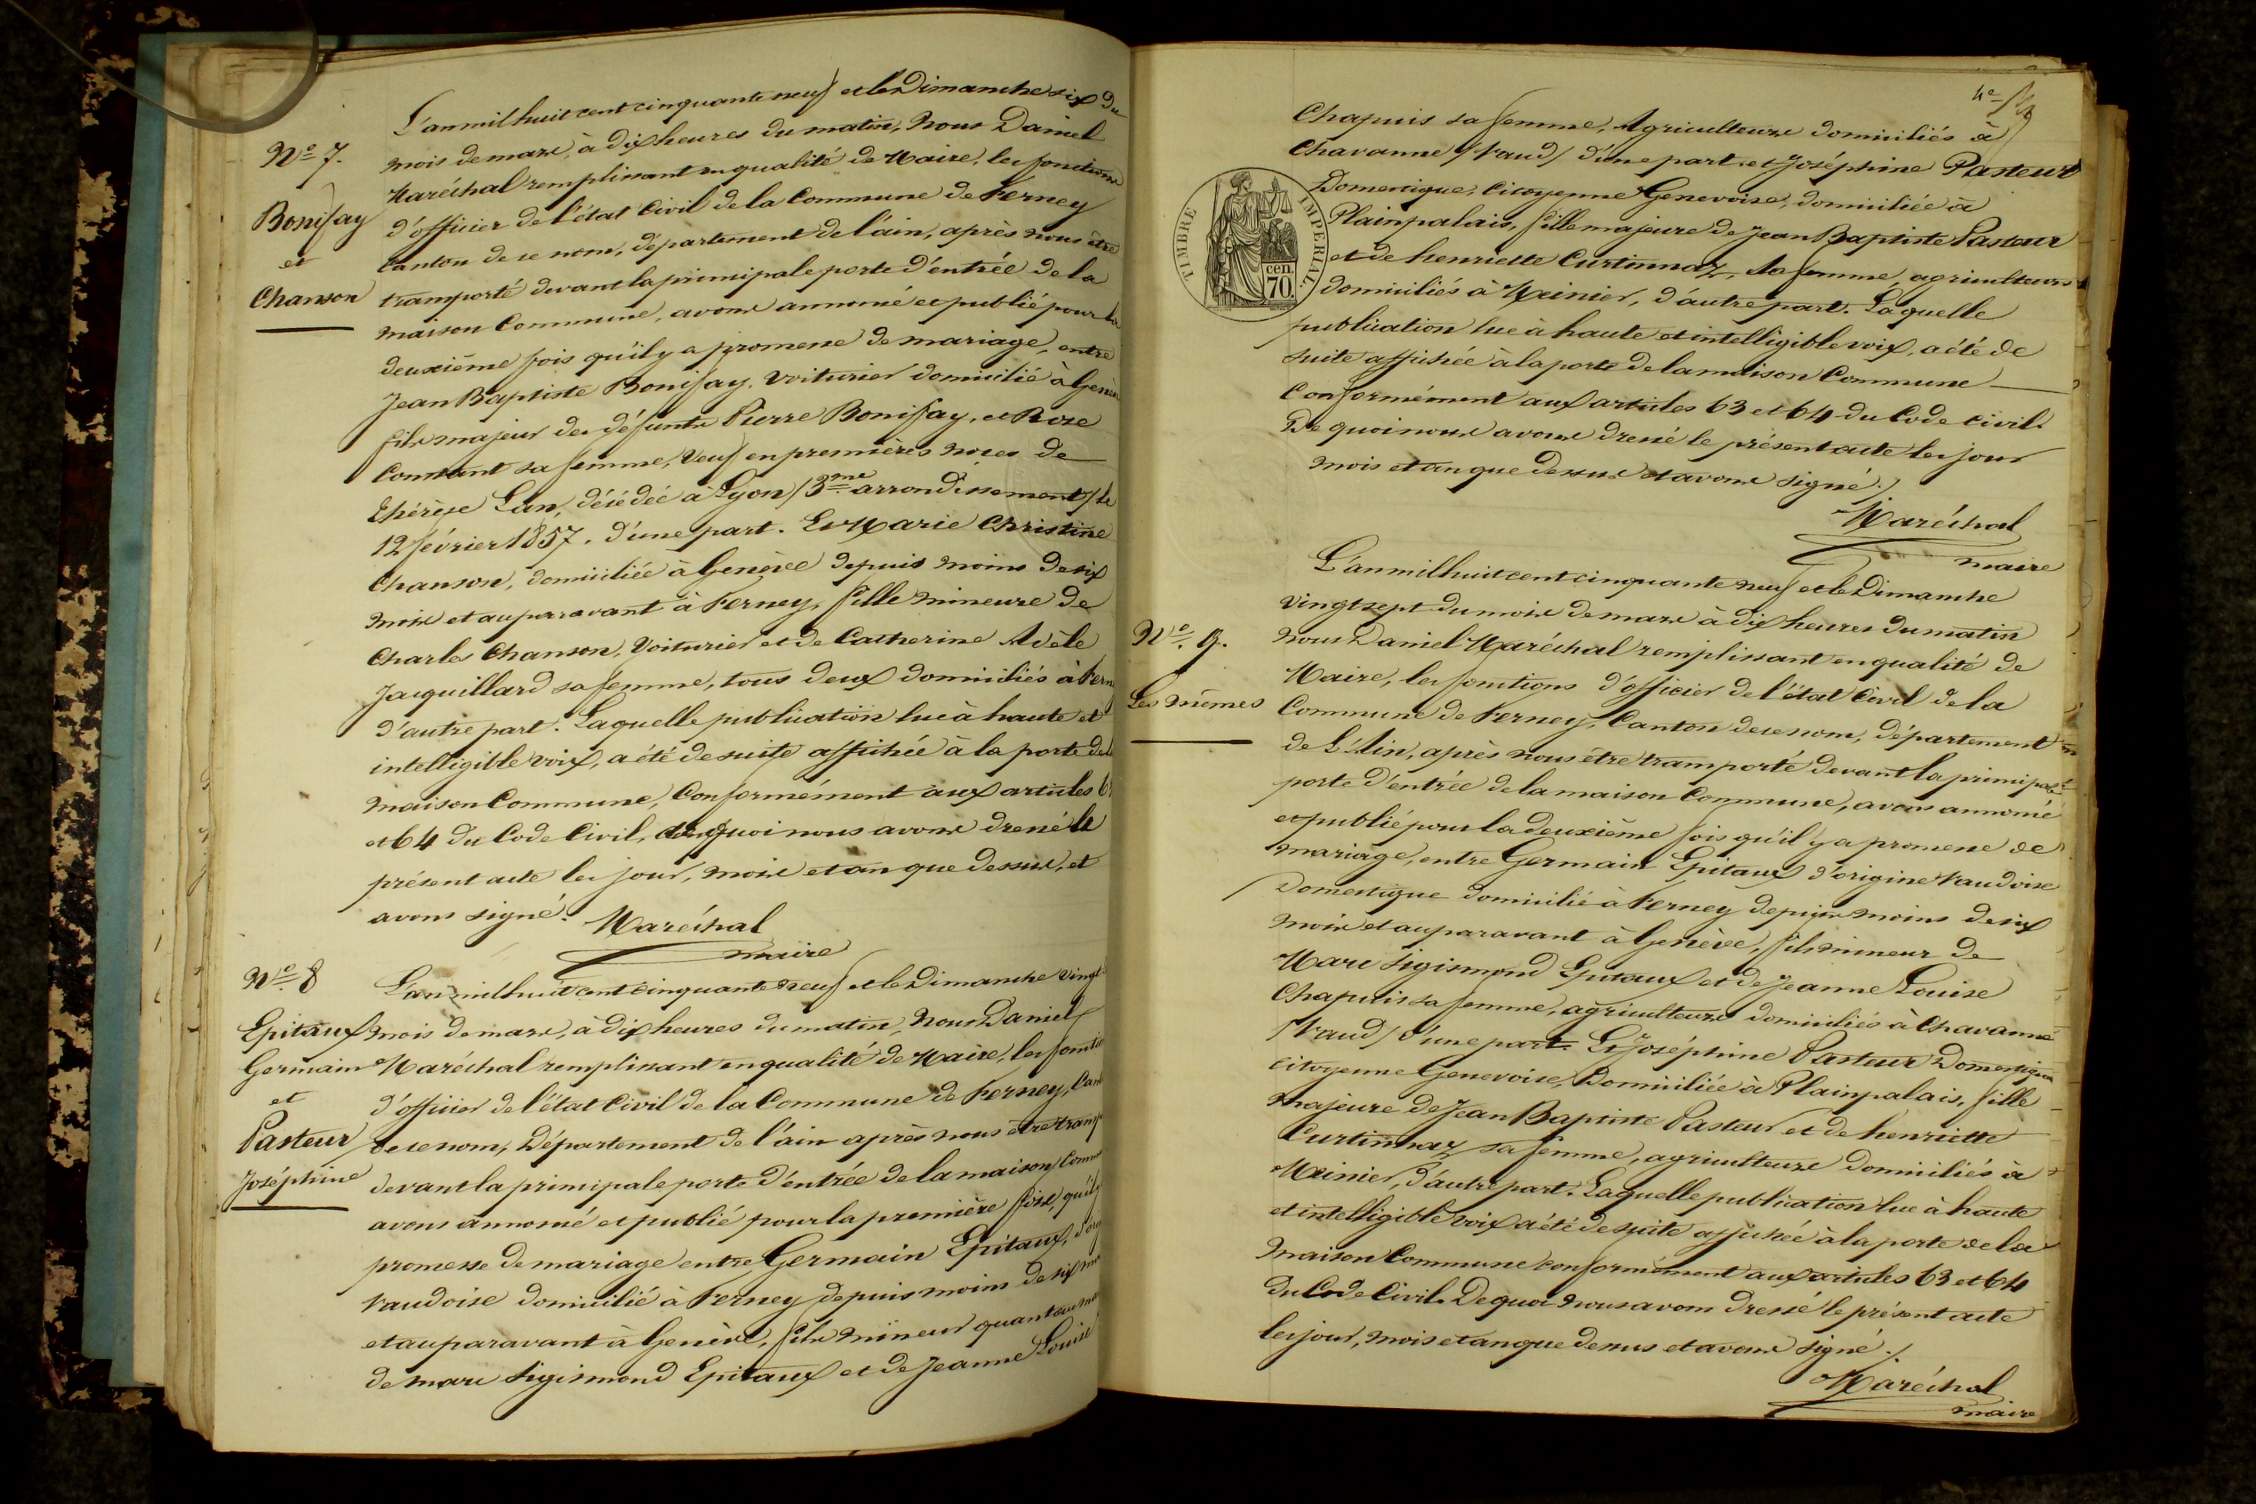 N° 7.
Bonifay
et
Chanson
L'an mil huit cent cinquante neuf et le Dimanche six du
mois de mars, à dix heures du matin, Nous Daniel
Maréchal remplissant en qualité de Maire, les fonctions
d'officier de l'état Civil de la Commune de Ferney
canton de ce nom, département de l'ain, après nous être
transporté devant la principale porte d'entrée de la
maison Commune, avons annoncé et publié pour la
deuxième fois qu'il y a promesse de mariage, entre
Jean Baptiste Bonifay, voiturier domicilié à Genève
fils majeur des défunts Pierre Bonifay, et Roze
Constant sa femme, Veuf en premières noces de
Thérèse Lan, décédée à Lyon (3me arrondissement) le
12 février 1857. d'une part. Et Marie Christine
Chanson, domiciliée à Genève depuis moins de six
mois et auparavant à Ferney, fille mineure de
Charles Chanson, Voiturier et de Catherine Adèle
Jacquillard sa femme, tous deux domiciliés à Fern
d'autre part. Laquelle publication lue à haute et
intelligible voix, a été de suite affichée à la porte de la
maison Commune, Conformément aux articles 6
et 64 du Code Civil, de quoi nous avons dressé le
présent acte les jour, mois et an que dessus, et
avons signé.
Maréchal
maire
N° 8
Epitaux
Germain
et
Pasteur
Joséphine
L'an mil huit cent cinquante neuf et le Dimanche vingt
mois de mars, à dix heures du matin, Nous Daniel
Maréchal remplissant en qualité de Maire, les fonctio
d'officier de l'état Civil de la Commune de Ferney, Can
de ce nom, Département de l'ain après nous être transp
devant la principale porte d'entrée de la maison Comm
avons annoncé et publié pour la première fois, qu'il y
promesse de mariage entre Germain Epitaux, d'orig
vaudoise domicilié à Ferney depuis moins de six mo
et auparavant à Genève, fils mineur quant au mar
de marc Sigismond Epitaux et de Jeanne Louise
4e
Chapuis sa femme, Agriculteurs domiciliés à
Chavanne (Vaud) d'une part. et Joséphine Pasteur
Domestique, Citoyenne Genevoise, domiciliée à
Plainpalais, fille majeure de Jean Baptiste Pasteur
et de henriette Curtinnaz, sa femme, agriculteurs
domiciliés à Meinier, d'autre part. Laquelle
publication lue à haute et intelligible voix, a été de
suite affichée à la porte de la maison Commune
Conformément aux articles 63 et 64 du Code civil.
De quoi nous avons dressé le présent acte les jour
mois et an que dessus et avons signé.
Maréchal
maire
TIMBRE IMPERIAL
cen.
70.
N° 9.
Les mêmes
L'an mil huit cent cinquante neuf et le Dimanche
vingt sept du mois de mars à dix heures du matin
nous Daniel Maréchal remplissant en qualité de
Maire, les fonctions d'officier de l'état Civil de la
Commune de Ferney, Canton de ce nom, département
de L'Ain, après nous être transporté devant la principale
porte d'entrée de la maison Commune, avons annoncé
et publié pour la deuxième fois qu'il y a promesse de
mariage, entre Germain Epitaux d'origine Vaudoise
Domestique domicilié à Ferney depuis moins de six
mois et auparavant à Genève, fils mineur de
Marc Sigismond Epitaux et de Jeanne Louise
Chapuis sa femme, agriculteurs domiciliés à Chavanne
(Vaud) d'une part. Et Joséphine Pasteur Domestique
citoyenne Genevoise, Domiciliée à Plainpalais, fille
majeure de Jean Baptiste Pasteur et de henriette
Curtinnaz sa femme, agriculteurs domiciliés à
Meinier, d'autre part. Laquelle publication lue à haute
et intelligible voix a été de suite affichée à la porte de la
maison Commune conformément aux articles 63 et 64
du Code Civil. De quoi nous avons Dressé le présent acte
les jour, mois et an que dessus et avons signé.
Maréchal
maire